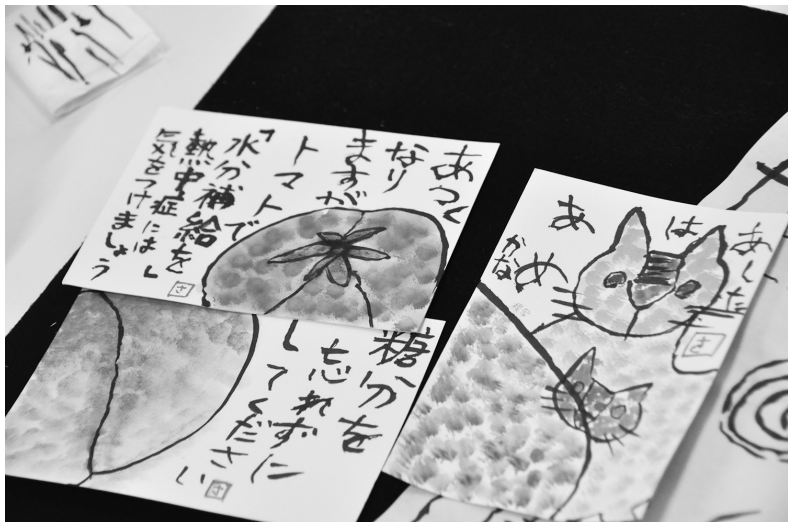 あつく
なり
ますが
トマトで
「水分補給を
熱中症には」
気をつけましょう
さ
糖分を
忘れずに
してください
さ
あした
は
あめ
かな
さ